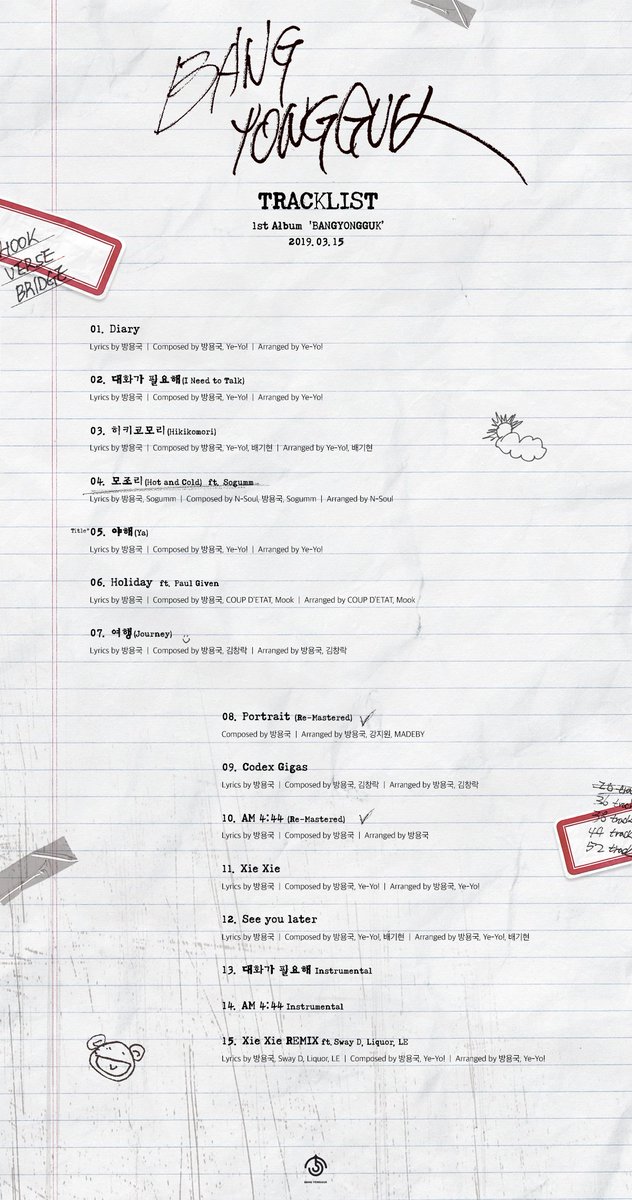 BANG
YONGGUK
TRACKLIST
1st Album 'BANGYONGGUK'
2019.03.15
HOOK
VERSE
BRIDGE
01. Diary
Lyrics by 방용국 | Composed by 방용국, Ye-Yo! | Arranged by Ye-Yo!
02. 대화가 필요해(I Need to Talk)
Lyrics by 방용국 | Composed by 방용국, Ye-Yo! | Arranged by Ye-Yo!
03. 히키코모리(Hikikomori)
Lyrics by 방용국 | Composed by 방용국, Ye-Yo!, 배기현 | Arranged by Ye-Yo!, 배기현
04. 모조리(Hot and Cold) ft. Sogumm
Lyrics by 방용국, Sogumm | Composed by N-Soul, 방용국, Sogumm | Arranged by N-Soul
Title* 05. 야해(Ya)
Lyrics by 방용국 | Composed by 방용국, Ye-Yo! | Arranged by Ye-Yo!
06. Holiday ft. Paul Given
Lyrics by 방용국 | Composed by 방용국, COUP D'ETAT, Mook | Arranged by COUP D'ETAT, Mook
07. 여행(Journey)
Lyrics by 방용국 | Composed by 방용국, 김창락 | Arranged by 방용국, 김창락
08. Portrait (Re-Mastered)
Composed by 방용국 | Arranged by 방용국, 강지원, MADEBY
09. Codex Gigas
Lyrics by 방용국 | Composed by 방용국, 김창락 | Arranged by 방용국, 김창락
10. AM 4:44 (Re-Mastered)
Lyrics by 방용국 | Composed by 방용국 | Arranged by 방용국
36 track
44 track
52 track
11. Xie Xie
Lyrics by 방용국 | Composed by 방용국, Ye-Yo! | Arranged by 방용국, Ye-Yo!
12. See you later
Lyrics by 방용국 | Composed by 방용국, Ye-Yo!, 배기현 | Arranged by 방용국, Ye-Yo!, 배기현
13. 대화가 필요해 Instrumental
14. AM 4:44 Instrumental
15. Xie Xie REMIX ft. Sway D, Liquor, LE
Lyrics by 방용국, Sway D, Liquor, LE | Composed by 방용국, Ye-Yo! | Arranged by 방용국, Ye-Yo!
BANG YONGGUK